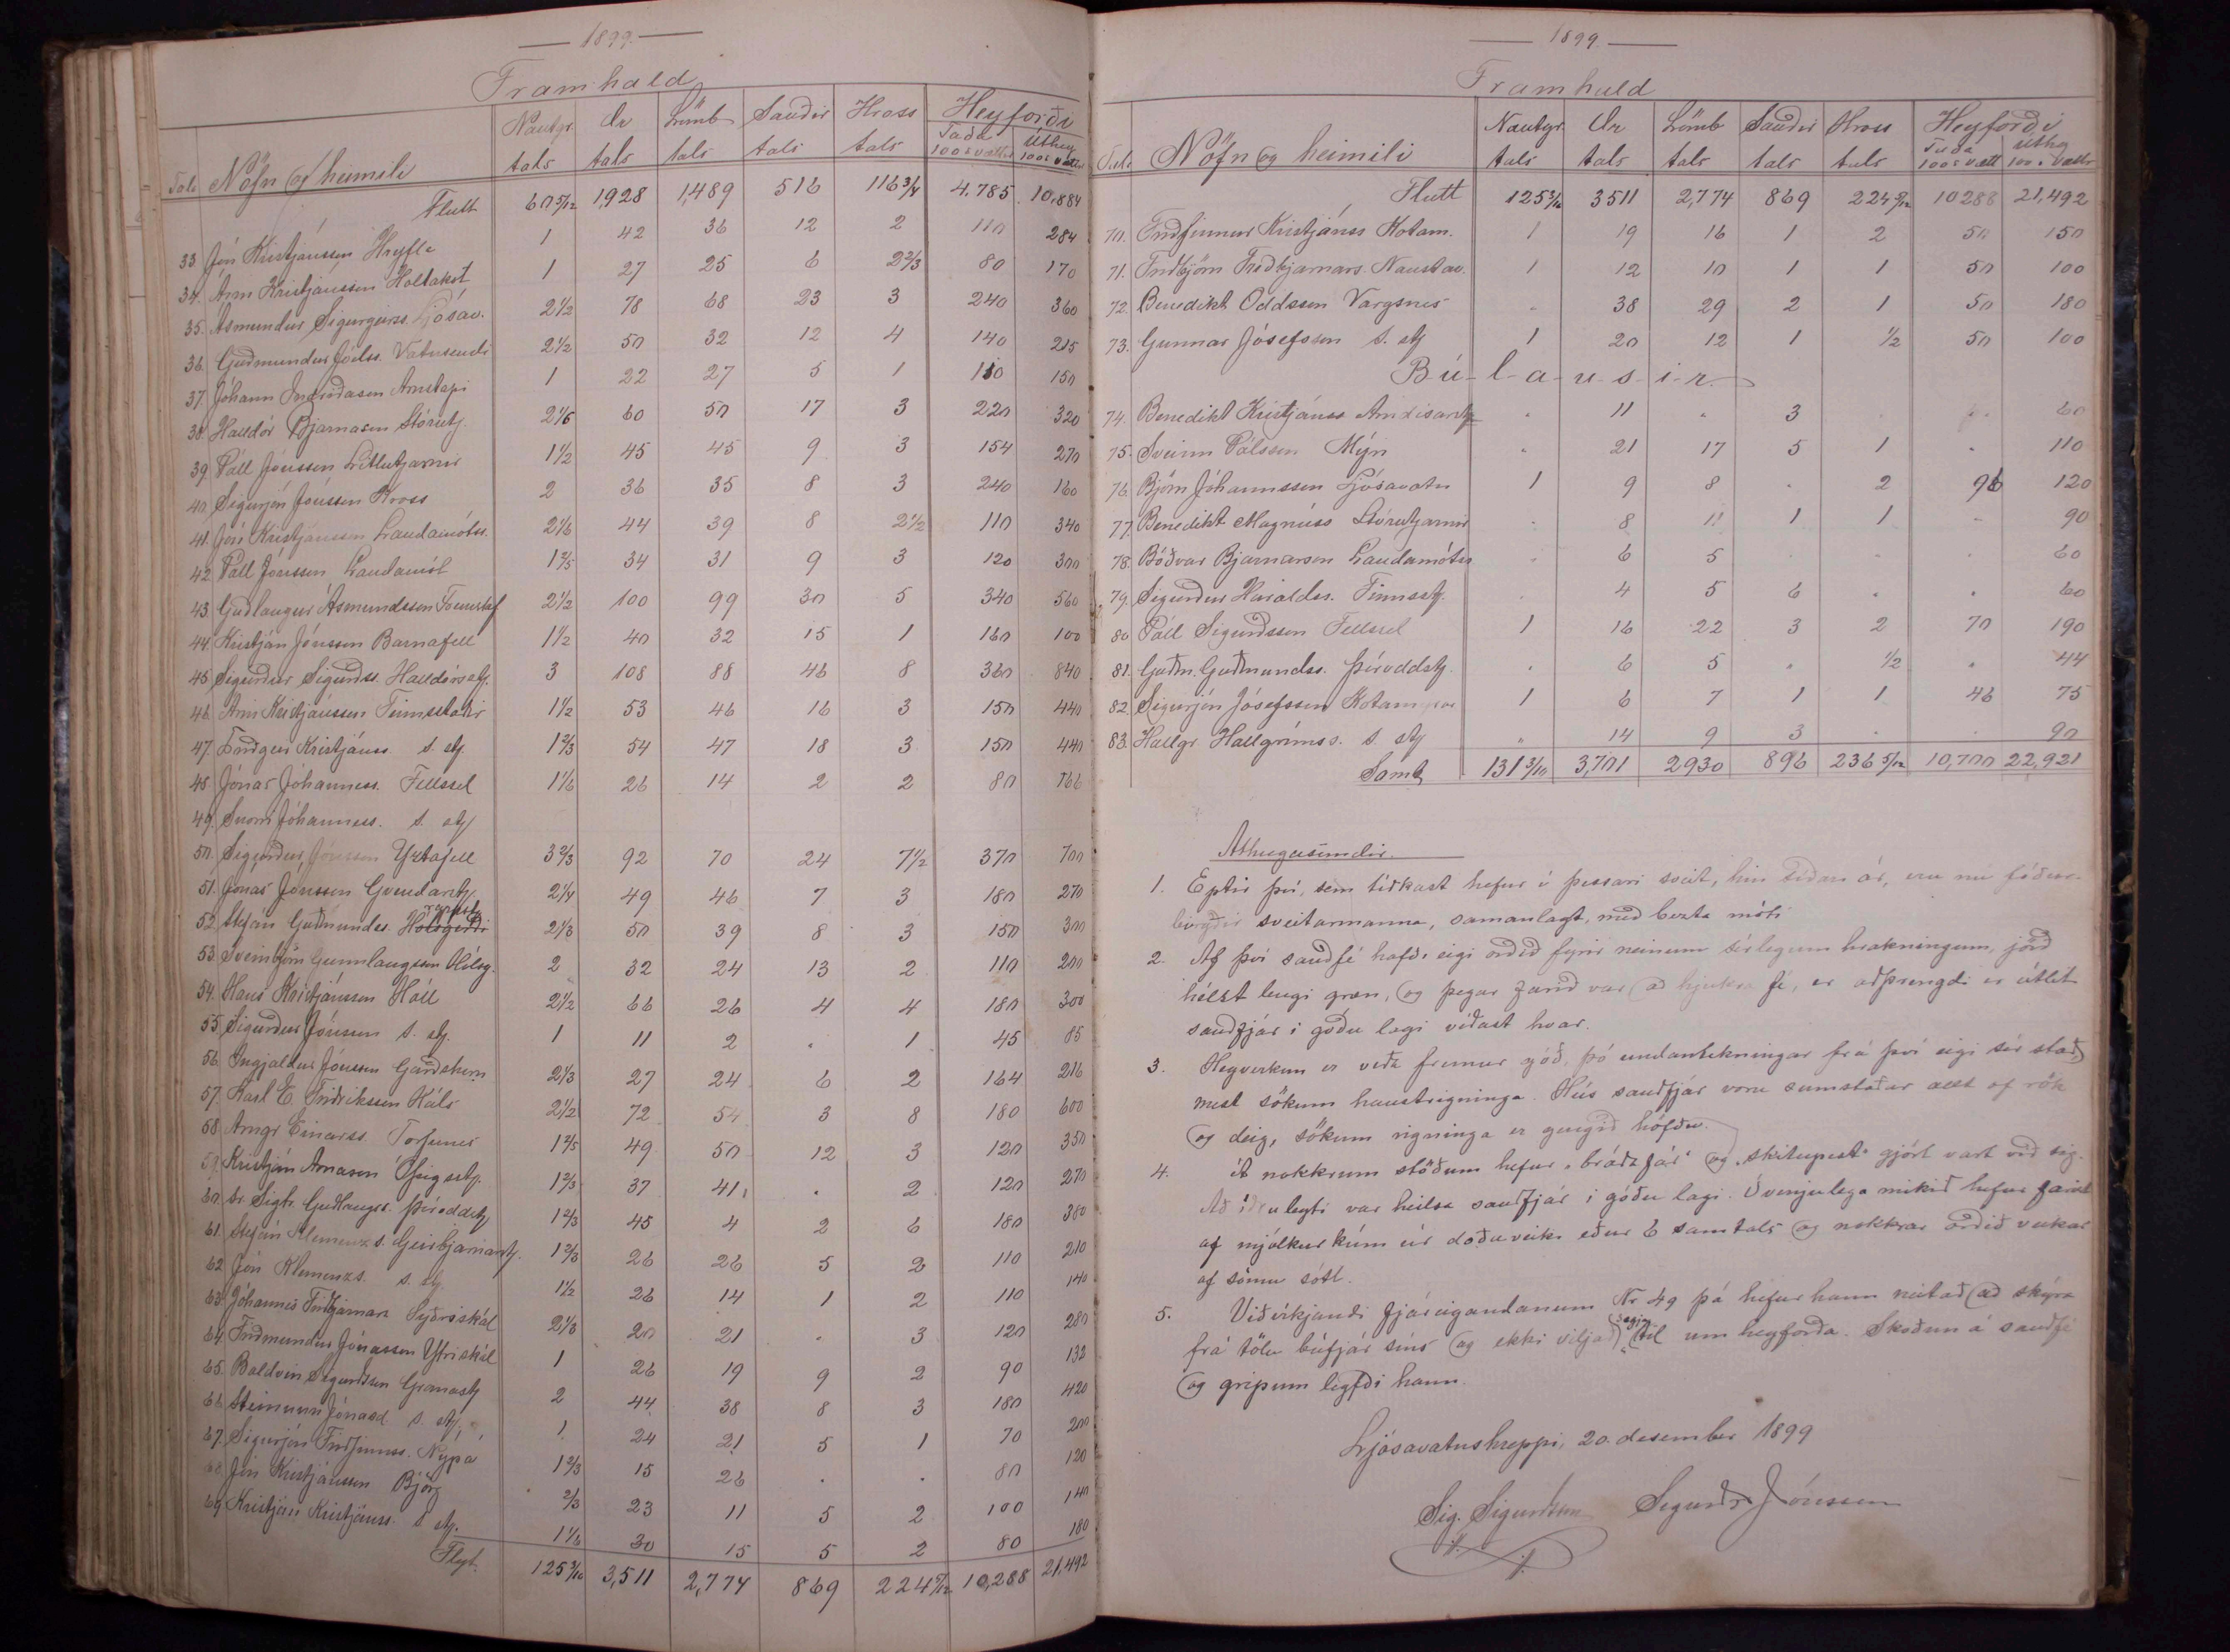 — 1899. —
Framhald
Tals Nöfn og heimili Nautgr. tals Ær tals Lömb tals Sauðir tals Hross tals Heyforði Taða 100 ℔ vætt Úthey 100 ℔ vætt
Flutt 1,928 1,489 516 116 3/4 4,785 10,884
33 Jón Kristjánsson Hryfle 1 42 36 12 2 110 284
34. Árni Kristjánsson Holtakot 1 27 25 6 2 2/3 80 170
35. Ásmundur Sigurgeirss. Ljósav. 2 1/2 78 68 23 3 240 360
36. Guðmundur Jóelss. Vatnsendi 2 1/2 50 32 12 4 140 215
37. Jóhann Indriðason Arnstapi 1 22 27 5 1 150
38. Halldór Bjarnason Stórutj. 2 1/6 60 50 17 3 220 320
39. Páll Jónsson Litlutjarnir 1 1/2 45 45 9 3 154 270
40. Sigurjón Jónsson Kross 2 36 35 8 3 240 160
41. Jón Kristjánsson Landamótss. 2 1/6 44 39 8 2 1/2 110 340
42. Páll Jónsson Landamót 1 2/5 34 31 9 3 120 300
43. Guðlaugur Ásmundsson 2 1/2 100 99 30 5 340 560
44. Kristján Jónsson Barnafell 1 1/2 40 32 15 1 160 100
45. Sigurður Sigurðss. Halldórsstj. 3 108 88 46 8 360 840
46. Árni Kristjánsson Finnsstaðir 1 1/2 53 46 16 3 150 440
47. Friðgeir Kristjánss. s. stj. 1 2/3 54 47 18 3 150 440
48. Jónas Jóhanness. Fellssel 1 1/6 26 14 2 2 80 166
49. Snorri Jóhanness. s. stj
50. Sigurður Jónsson Yztafell 3 2/3 92 70 24 7 1/2 370 700
51. Jónas Jónsson Gvendarstj. 2 1/4 49 46 7 3 180 270
52. Stefán Guðmundss. 2 1/3 50 39 8 3 150 300
53. Sveinbjörn Gunnlaugsson Hólsg. 2 32 24 13 2 110 200
54. Hans Kristjánsson Hóll 2 1/2 66 26 4 4 180 300
55. Sigurður Jónsson s. stj. 1 11 2 . 1 45 85
56. Ingjaldur Jónsson Garðshorn 2 1/3 27 24 6 2 164 216
57. Karl E. Friðriksson Háls 2 1/2 72 54 3 8 180 600
58. Arngr Einarss. Torfunes 1 2/5 49 50 12 3 120 350
59. Kristján Árnason Ófeigsstj. 1 2/3 37 41 . 2 120 270
60. Sr. Sigtr. Guðlaugss. Þóroddstj 1 2/3 45 4 2 6 180 380
61. Stefán Klemenzs. Geirbjarnarstj. 1 2/3 26 26 5 2 110 210
62. Jón Klemenzs. s. stj. 1 1/2 26 14 1 2 110 140
63. Jóhannes Friðbjarnars. Syðriskál 2 1/3 20 21 . 3 120 280
64. Friðmundur Jónasson Ytriskál 1 26 19 9 2 90 132
65. Baldvin Sigurðsson Granastj 2 44 38 8 3 180 420
66. Steinunn Jónasd. s. stj. 1 24 21 5 1 70 200
67. Sigurjón Friðfinnss. Nýpá 1 2/3 15 26 . . 80 120
68. Jón Kristjánsson Björg 2/3 23 11 5 2 100 140
69. Kristján Kristjánss. s. stj. 1 1/6 30 15 5 2 80 180
Flyt. 125 3/10 3,511 2,774 869 224 10,288 21,492
— 1899. —
Framhald
Tals Nöfn og heimili Nautgr. tals Ær tals Lömb tals Sauðir tals Hross tals Heyforði Taða 100 ℔ vætt Úthey 100 ℔ vætt
Flutt 125 3/10 3511 2,774 869 224 10288 21,492
70. Friðfinnur Kristjánss Kotam. 1 19 16 1 2 50 150
71. Friðbjörn Friðbjarnars. Naustav. 1 12 10 1 1 50 100
72. Benedikt Oddsson Vargsnes . 38 29 2 1 50 180
73. Gunnar Jósefsson s. stj 1 20 12 1 1/2 50 100
B-ú-l-a-u-s-i-r.
74. Benedikt Kristjánss Arndísarstj . 11 . 3 . . 60
75. Sveinn Pálsson Mýri . 21 17 5 1 . 110
76. Björn Jóhannsson Ljósavatn 1 9 8 . 2 96 120
77. Benedikt Magnúss Stórutjarnir . 8 11 1 1 . 90
78. Böðvar Bjarnarson Landamótss . 6 5 . . . 60
79. Sigurður Haraldss. Finnsstj. . 4 5 6 . . 60
80. Páll Sigurðsson Fellssel 1 16 22 3 2 70 190
81. Guðm. Guðmundss. Þóroddstj. . 6 5 . 1/2 . 44
82. Sigurjón Jósefsson Kotam 1 6 7 1 1 46 75
83. Hallgr Hallgrímss. s. stj . 14 9 3 . . 90
Samt. 131 3/10 3,701 2930 896 236 5/12 10,700 22,921
Athugasemdir.
1. Eptir því, sem tíðkast hefur í þessari sveit, hin síðari ár, eru nu fóður-
birgðir sveitarmanna, samanlagt, með bezta móti
2. Af því sauðfé hafði eigi orðið fyrir neinum sérlegum hrakningum, jörð
hélst lengi græn, og þegar farið var að hjúkra fé, er aðþrengdi er útlit
sauðfjár í góðu lagi víðast hvar.
3. Heyverkun er víða fremur góð, þó undantekningar frá því eigi sér stað
mest sökum haustrigninga. Hús sauðfjár voru sumstaðar allt of rök
og deig, sökum rigninga er gengið höfðu.
4. Á nokkrum stöðum hefur „bráðafár“ og „skitupest“ gjört vart við sig.
Að öðru leyti var heilsa sauðfjár í góðu lagi. Óvenjulega mikið hefur farið
af mjólkurkúm úr doðaveiki eður 6 samtals og nokkrar orðið veikar
af sömu sótt.
5. Viðvíkjandi fjáreigandanum Nr 49 þá hefur hann neitað að skýra
frá tölu búfjár síns og ekki viljað segja til um heyforða. Skoðun á sauðfé
og gripum leyfði hann.
Ljósavatnshreppi, 20. desember 1899
Sig. Sigurðsson Sigurðr Jónsson